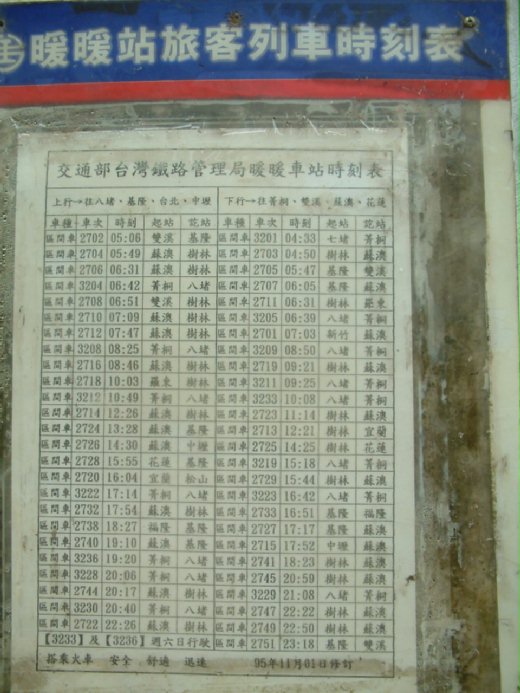 暖暖站旅客列車時刻表
交通部台灣鐵路管理局暖暖車站時刻表
上行→往八堵、基隆、台北、中壢 下行→往菁桐、雙溪、蘇澳、花蓮
車種 車次 時刻 起站 訖站 車種 車次 時刻 起站 訖站
區間車 2702 05:06 雙溪 基隆 區間車 3201 04:33 七堵 菁桐
區間車 2704 05:49 蘇澳 樹林 區間車 2703 04:50 樹林 蘇澳
區間車 2706 06:31 蘇澳 樹林 區間車 2705 05:47 基隆 雙溪
區間車 3204 06:42 菁桐 八堵 區間車 2707 06:05 基隆 蘇澳
區間車 2708 06:51 雙溪 樹林 區間車 2711 06:31 樹林 羅東
區間車 2710 07:09 蘇澳 樹林 區間車 3205 06:39 八堵 菁桐
區間車 2712 07:47 蘇澳 樹林 區間車 2701 07:03 新竹 蘇澳
區間車 3208 08:25 菁桐 八堵 區間車 3209 08:50 八堵 菁桐
區間車 2716 08:46 蘇澳 樹林 區間車 2719 09:21 樹林 蘇澳
區間車 2718 10:03 羅東 樹林 區間車 3211 09:25 八堵 菁桐
區間車 3212 10:49 菁桐 八堵 區間車 3233 10:08 八堵 菁桐
區間車 2714 12:26 蘇澳 樹林 區間車 2723 11:14 樹林 蘇澳
區間車 2724 13:28 蘇澳 基隆 區間車 2713 12:21 樹林 宜蘭
區間車 2726 14:30 蘇澳 中壢 區間車 2725 14:25 樹林 花蓮
區間車 2728 15:55 花蓮 基隆 區間車 3219 15:18 八堵 菁桐
區間車 2720 16:04 宜蘭 松山 區間車 2729 15:44 樹林 蘇澳
區間車 3222 17:14 菁桐 八堵 區間車 3223 16:42 八堵 菁桐
區間車 2732 17:54 蘇澳 樹林 區間車 2733 16:51 基隆 福隆
區間車 2738 18:27 福隆 基隆 區間車 2727 17:17 基隆 蘇澳
區間車 2740 19:10 蘇澳 基隆 區間車 2715 17:52 中壢 蘇澳
區間車 3236 19:20 菁桐 八堵 區間車 2741 18:23 樹林 蘇澳
區間車 3228 20:06 菁桐 八堵 區間車 2745 20:59 樹林 蘇澳
區間車 2744 20:17 蘇澳 樹林 區間車 3229 21:08 八堵 菁桐
區間車 3230 20:40 菁桐 八堵 區間車 2747 22:22 樹林 蘇澳
區間車 2722 22:26 蘇澳 樹林 區間車 2749 22:50 樹林 蘇澳
【3233】及【3236】週六日行駛 區間車 2751 23:18 基隆 雙溪
搭乘火車 安全 舒適 迅速 95年11月01日修訂